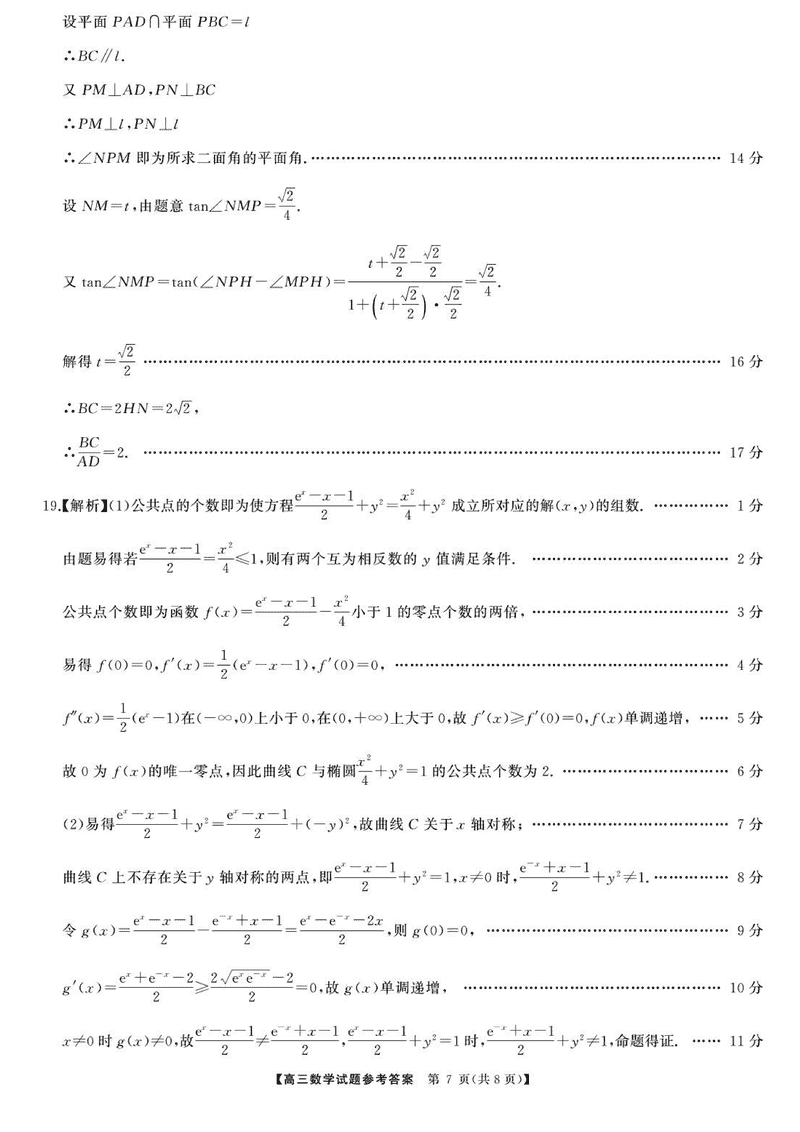 设平面 PAD∩平面 PBC=l
∴BC∥l.
又 PM⊥AD,PN⊥BC
∴PM⊥l,PN⊥l
∴∠NPM 即为所求二面角的平面角. …… 14 分
设 NM=t,由题意 tan∠NMP=√2/4.
又 tan∠NMP=tan(∠NPH−∠MPH)=(t+√2/2−√2/2)/(1+(t+√2/2)·√2/2)=√2/4.
解得 t=√2/2 …… 16 分
∴BC=2HN=2√2,
∴BC/AD=2. …… 17 分
19.【解析】(1)公共点的个数即为使方程(e^x−x−1)/2+y²=x²/4+y² 成立所对应的解(x,y)的组数. …… 1 分
由题易得若(e^x−x−1)/2=x²/4≤1,则有两个互为相反数的 y 值满足条件. …… 2 分
公共点个数即为函数 f(x)=(e^x−x−1)/2−x²/4小于 1 的零点个数的两倍, …… 3 分
易得 f(0)=0,f′(x)=1/2(e^x−x−1),f′(0)=0, …… 4 分
f″(x)=1/2(e^x−1)在(−∞,0)上小于 0,在(0,+∞)上大于 0,故 f′(x)≥f′(0)=0,f(x)单调递增, …… 5 分
故 0 为 f(x)的唯一零点,因此曲线 C 与椭圆x²/4+y²=1 的公共点个数为 2. …… 6 分
(2)易得(e^x−x−1)/2+y²=(e^x−x−1)/2+(−y)²,故曲线 C 关于 x 轴对称; …… 7 分
曲线 C 上不存在关于 y 轴对称的两点,即(e^x−x−1)/2+y²=1,x≠0 时,(e^−x+x−1)/2+y²≠1. …… 8 分
令 g(x)=(e^x−x−1)/2−(e^−x+x−1)/2=(e^x−e^−x−2x)/2,则 g(0)=0, …… 9 分
g′(x)=(e^x+e^−x−2)/2≥(2√(e^x e^−x)−2)/2=0,故 g(x)单调递增, …… 10 分
x≠0 时 g(x)≠0,故(e^x−x−1)/2≠(e^−x+x−1)/2,(e^x−x−1)/2+y²=1 时,(e^−x+x−1)/2+y²≠1,命题得证. …… 11 分
【高三数学试题参考答案 第 7 页(共 8 页)】